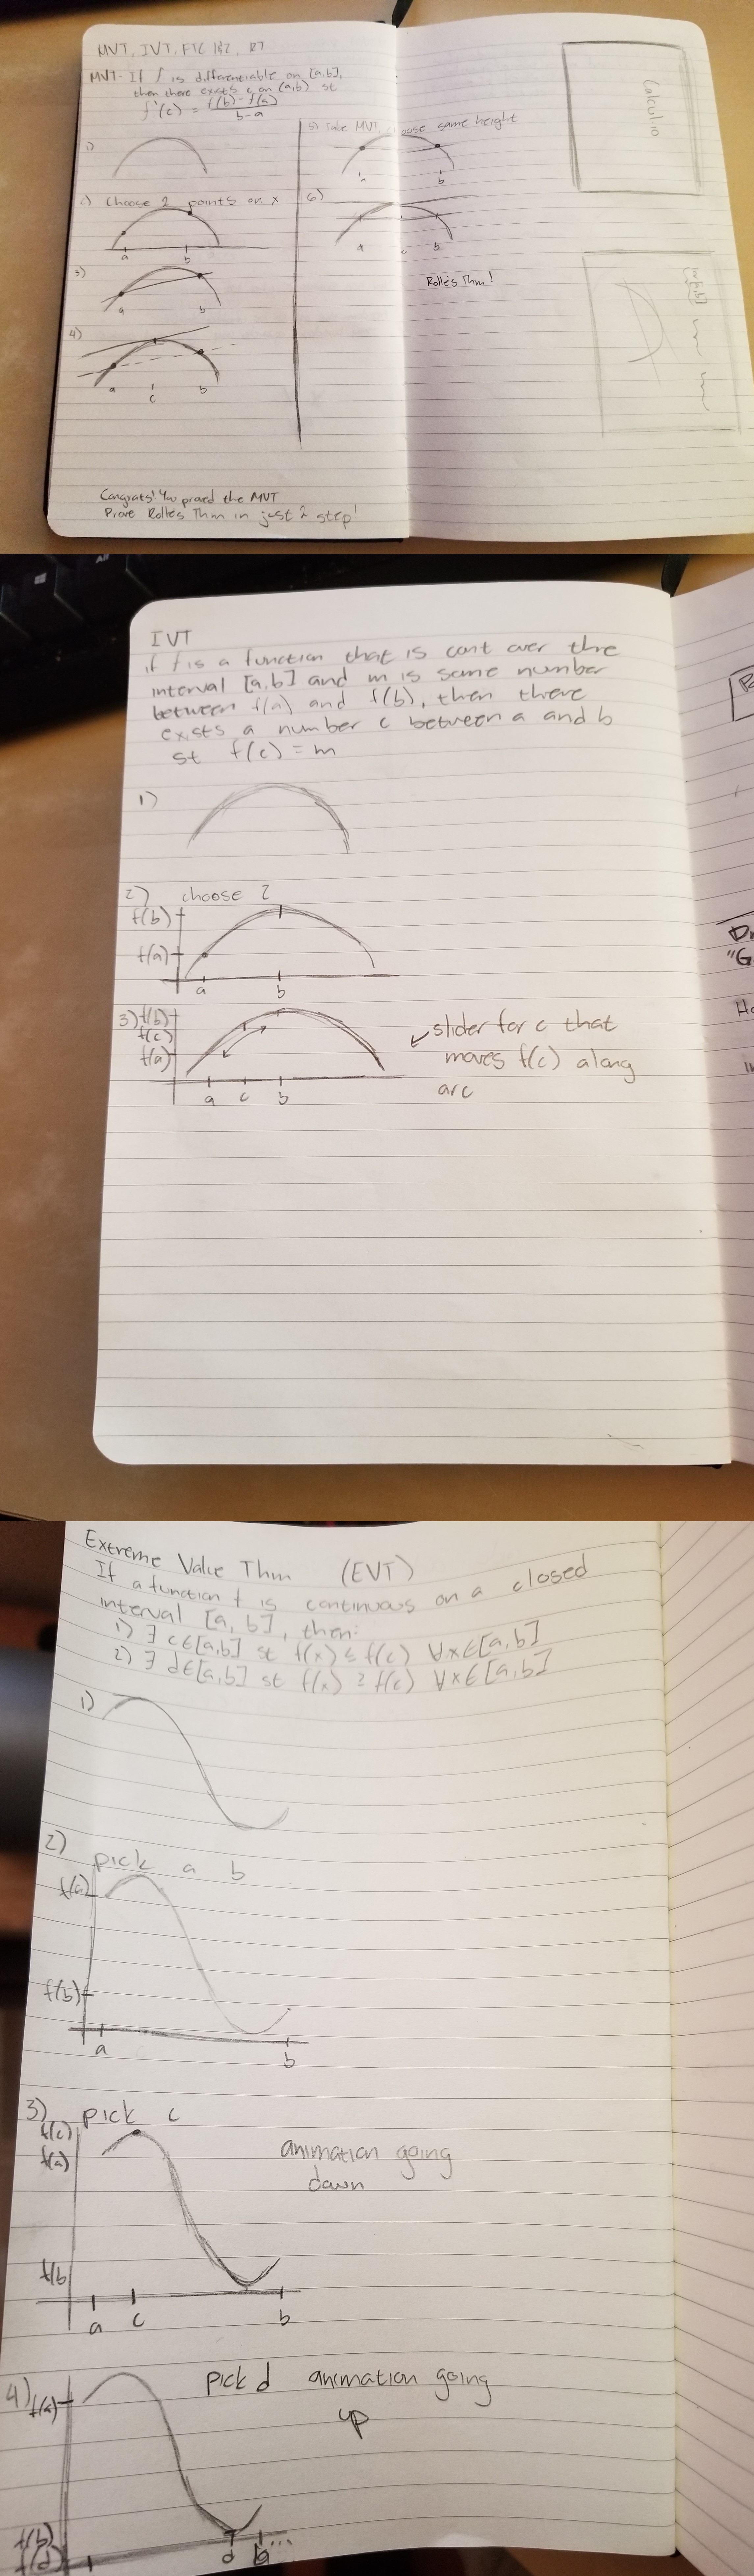 MVT, IVT, FTC 1&2, RT
MVT- If f is differentiable on [a,b],
then there exists c on (a,b) st
f'(c) = f(b)-f(a)
b-a
1)
2) Choose 2 points on x
a b
3)
a b
4)
a c b
Congrats! You proved the MVT
Prove Rolle's Thm in just 2 step!
5) Take MVT, choose same height
a b
6)
a c b
Rolle's Thm!
Calculio
[a,b]
IVT
if f is a function that is cont over the
interval [a,b] and m is some number
between f(a) and f(b), then there
exists a number c between a and b
st f(c) = m
1)
2) choose 2
f(b)
f(a)
a b
3) f(b)
f(c)
f(a)
a c b
slider for c that
moves f(c) along
arc
Extreme Value Thm (EVT)
If a function f is continuous on a closed
interval [a, b], then:
1) ∃ c∈[a,b] st f(x) ≤ f(c) ∀x∈[a,b]
2) ∃ d∈[a,b] st f(x) ≥ f(c) ∀x∈[a,b]
1)
2) pick a b
f(a)
f(b)
a b
3) pick c
f(c)
f(a)
f(b
a c b
animation going
down
4) pick d animation going
up
f(a)
f(b)
f(d)
d b...